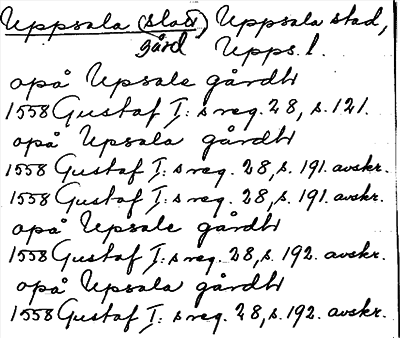 Uppsala (slott) Uppsala stad,
gård Upps. l.
opå Upsale gårdhr
1558 Gustaf I:s reg. 28, s. 121.
opå Upsala gårdhr
1558 Gustaf I:s reg. 28, s. 191. avskr.
1558 Gustaf I:s reg. 28, s. 191. avskr.
opå Upsale gårdhr
1558 Gustaf I:s reg. 28, s. 192. avskr.
opå Upsala gårdhr
1558 Gustaf I:s reg. 28, s. 192. avskr.